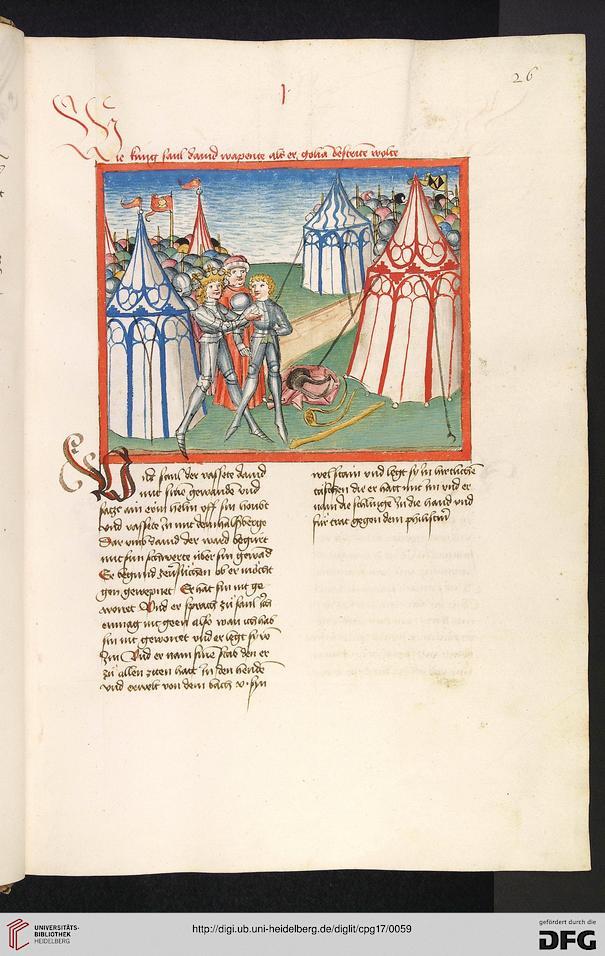 26
j
Wie kunig saul dauid wapente als er golia bestriten wolte
Und saul der vassete dauid
mit sinē gewande vnd
satzt ain erin helm vff sin houbt
vnd vassete in mit dem halsberge
Dar vmb dauid der ward begurt
mit sim schwerte über sin gewād
Er begund
ob er möcht
gen gewepnet Er hāt sin nit ge
wonet Und er sprach zů saul Ich
enmag nit geen also wan ich hab
sin nit gewonet vnd er legt sy vō
Im Und er nam sine stab den er
zů allen ziten hatt In den hende
vnd erwelt von dem bach v. syn
wel stain vnd legt sy in hirtliche
täschen die er hatt mit im vnd er
nam die schlinge In die hand vnd
für trat gegen dem philistin
UNIVERSITÄTS-
BIBLIOTHEK
HEIDELBERG
http://digi.ub.uni-heidelberg.de/diglit/cpg17/0059
gefördert durch die
DFG